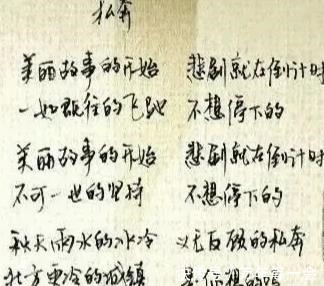 私奔
美丽故事的开始 悲剧就在倒计时
一如既往的飞驰 不想停下的
美丽故事的开始 悲剧就在倒计时
不可一世的坚持 不想停下的
秋天雨水的冰冷 义无反顾的私奔
北方更冷的城镇 你想的